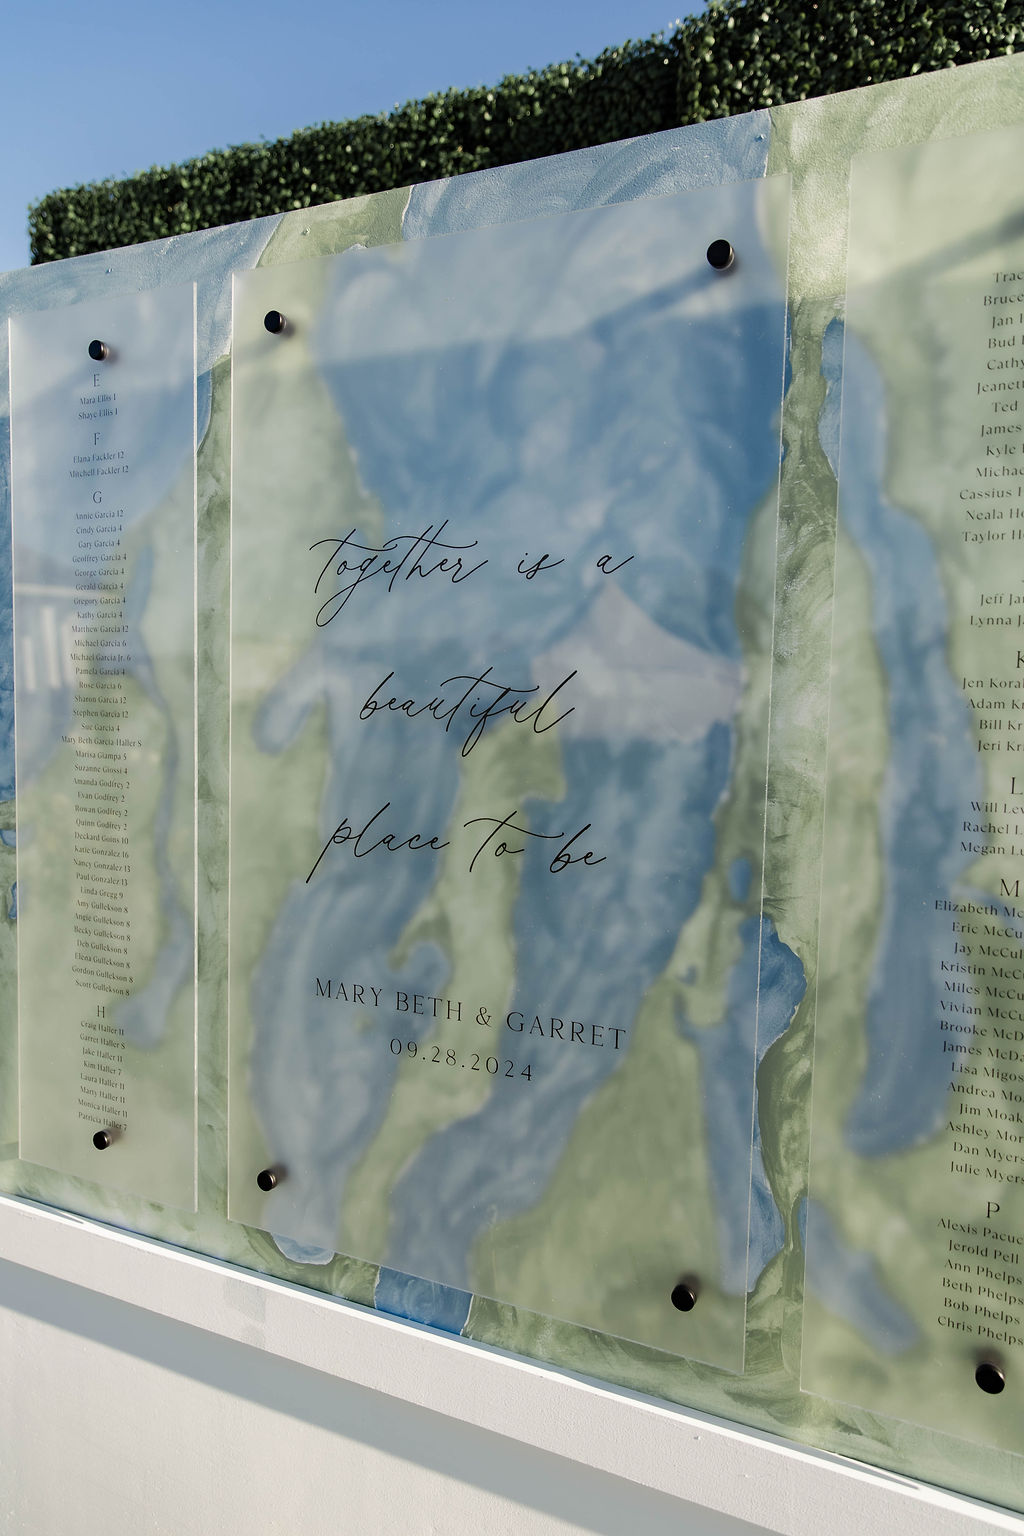 E
Mara Ellis 1
Shaye Ellis 1
F
Elana Fackler 12
Mitchell Fackler 12
G
Annie Garcia 12
Cindy Garcia 4
Gary Garcia 4
Geoffrey Garcia 4
George Garcia 4
Gerald Garcia 4
Gregory Garcia 4
Kathy Garcia 4
Matthew Garcia 12
Michael Garcia 6
Michael Garcia Jr. 6
Pamela Garcia 4
Rose Garcia 6
Sharon Garcia 12
Stephen Garcia 12
Sue Garcia 4
Mary Beth Garcia Haller S
Marisa Giampa 5
Suzanne Giossi 4
Amanda Godfrey 2
Evan Godfrey 2
Rowan Godfrey 2
Quinn Godfrey 2
Deckard Goins 10
Katie Gonzalez 16
Nancy Gonzalez 13
Paul Gonzalez 13
Linda Gregg 9
Amy Gullekson 8
Angie Gullekson 8
Becky Gullekson 8
Deb Gullekson 8
Elena Gullekson 8
Gordon Gullekson 8
Scott Gullekson 8
H
Craig Haller 11
Garret Haller S
Jake Haller 11
Kim Haller 7
Laura Haller 11
Marty Haller 11
Monica Haller 11
Patricia Haller 7
together is a
beautiful
place to be
MARY BETH & GARRET
09.28.2024
Trac
Bruce
Jan
Bud
Cathy
Jeanett
Ted
James
Kyle
Michae
Cassius
Neala He
Taylor H
Jeff Ja
Lynna J
K
Jen Koral
Adam Kr
Bill Kr
Jeri Kr
L
Will Lev
Rachel L
Megan Lu
M
Elizabeth Mc
Eric McCu
Jay McCul
Kristin McC
Miles McCu
Vivian McCu
Brooke McD
James McDa
Lisa Migos
Andrea Mo
Jim Moak
Ashley Mor
Dan Myers
Julie Myers
P
Alexis Pacuc
Jerold Pell
Ann Phelps
Beth Phelps
Bob Phelps
Chris Phelps